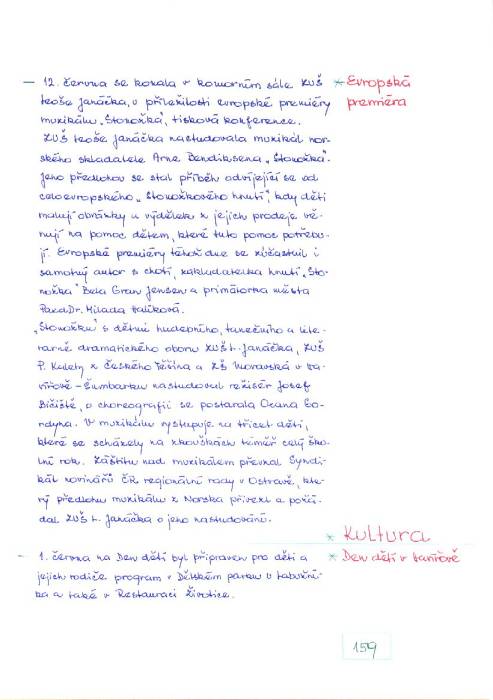 – 12. června se konala v komorním sále ZUŠ * Evropská
Leoše Janáčka, u příležitosti evropské premiéry premiéra
muzikálu „Stonožka“, tisková konference.
ZUŠ Leoše Janáčka nastudovala muzikál nor-
ského skladatele Arne Bendiksena „Stonožka“.
Jeho předlohou se stal příběh odvíjející se od
celoevropského „Stonožkového hnutí“, kdy děti
malují obrázky a výdělek z jejich prodeje vě-
nují na pomoc dětem, které tuto pomoc potřebu-
jí. Evropské premiéry téhož dne se zúčastnil i
samotný autor s chotí, zakladatelka hnutí „Sto-
nožka“ Bela Gran Jensen a primátorka města
PaedDr. Milada Halíková.
„Stonožku“ s dětmi hudebního, tanečního a lite-
rárně dramatického oboru ZUŠ L. Janáčka, ZUŠ
P. Kalety z Českého Těšína a ZŠ Moravská v Ha-
vířově – Šumbarku nastudoval režisér Josef
Bičiště, o choreografii se postarala Oxana Go-
rdyna. V muzikálu vystupuje na třicet dětí,
které se scházely na zkouškách téměř celý ško-
lní rok. Záštitu nad muzikálem převzal Syndi-
kát novinářů ČR regionální rady v Ostravě, kte-
rý předlohu muzikálu z Norska přivezl a požá-
dal ZUŠ L. Janáčka o jeho nastudování.
* Kultura
– 1. června na Den dětí byl připraven pro děti a * Den dětí v Havířově
jejich rodiče program v Dětském parku u Labužní-
ka a také v Restauraci Životice.
159